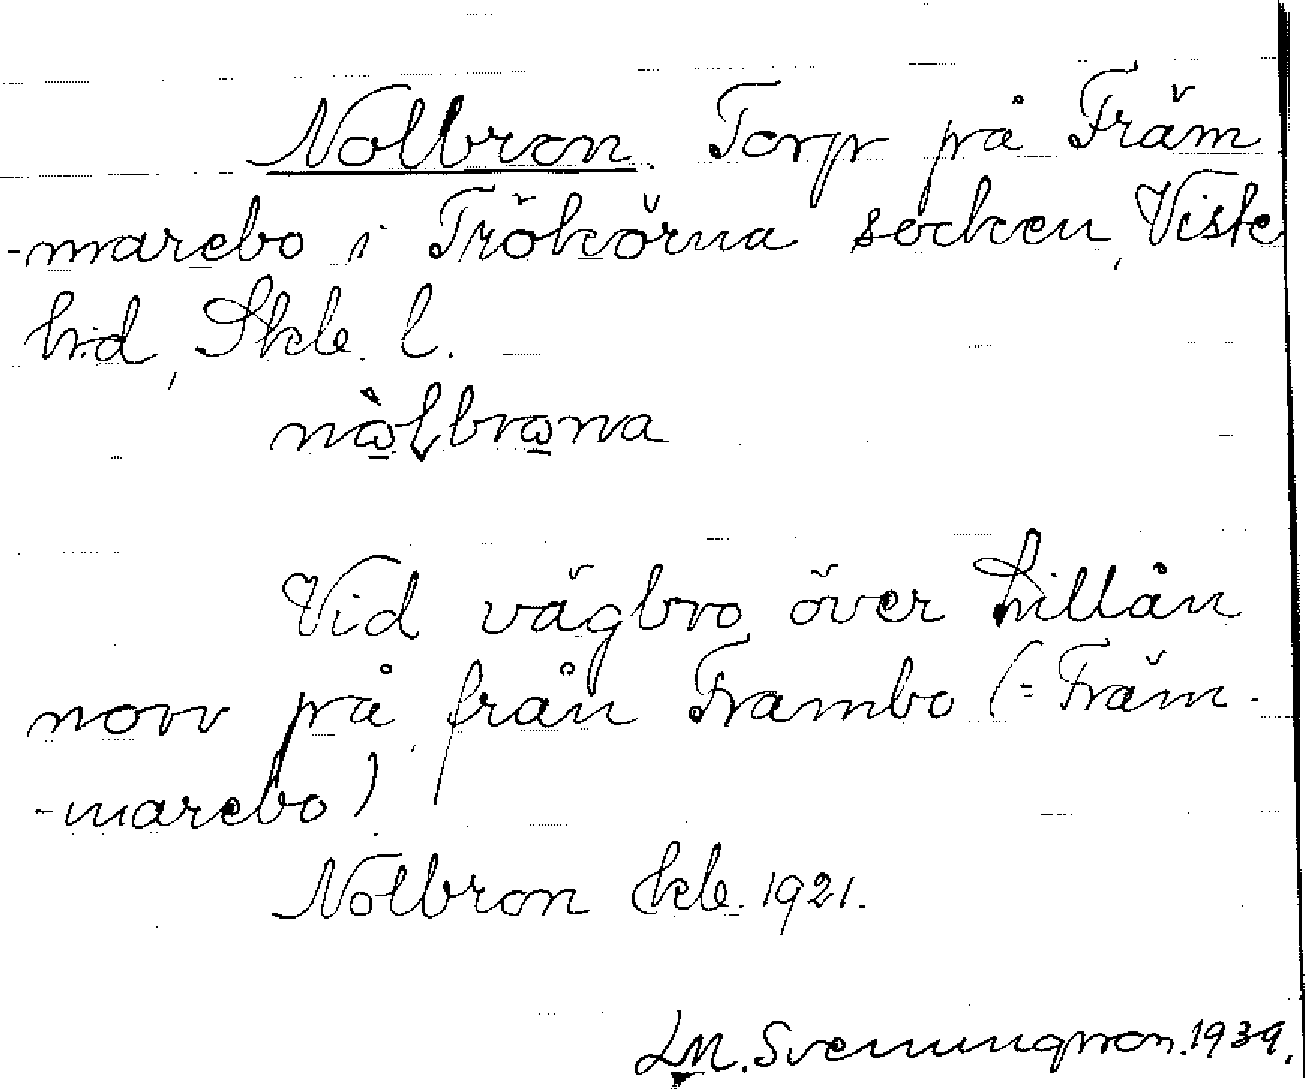 Nolbron. Torp på Främ
-marebo i Trökörna socken, Viste
hrd, Skb. l.
nὼlbrωna
Vid vägbro över Lillån
norr på från Frambo (= Främ-
-marebo)
Nolbron Ekb. 1921.
LM. Svenungsson. 1939.